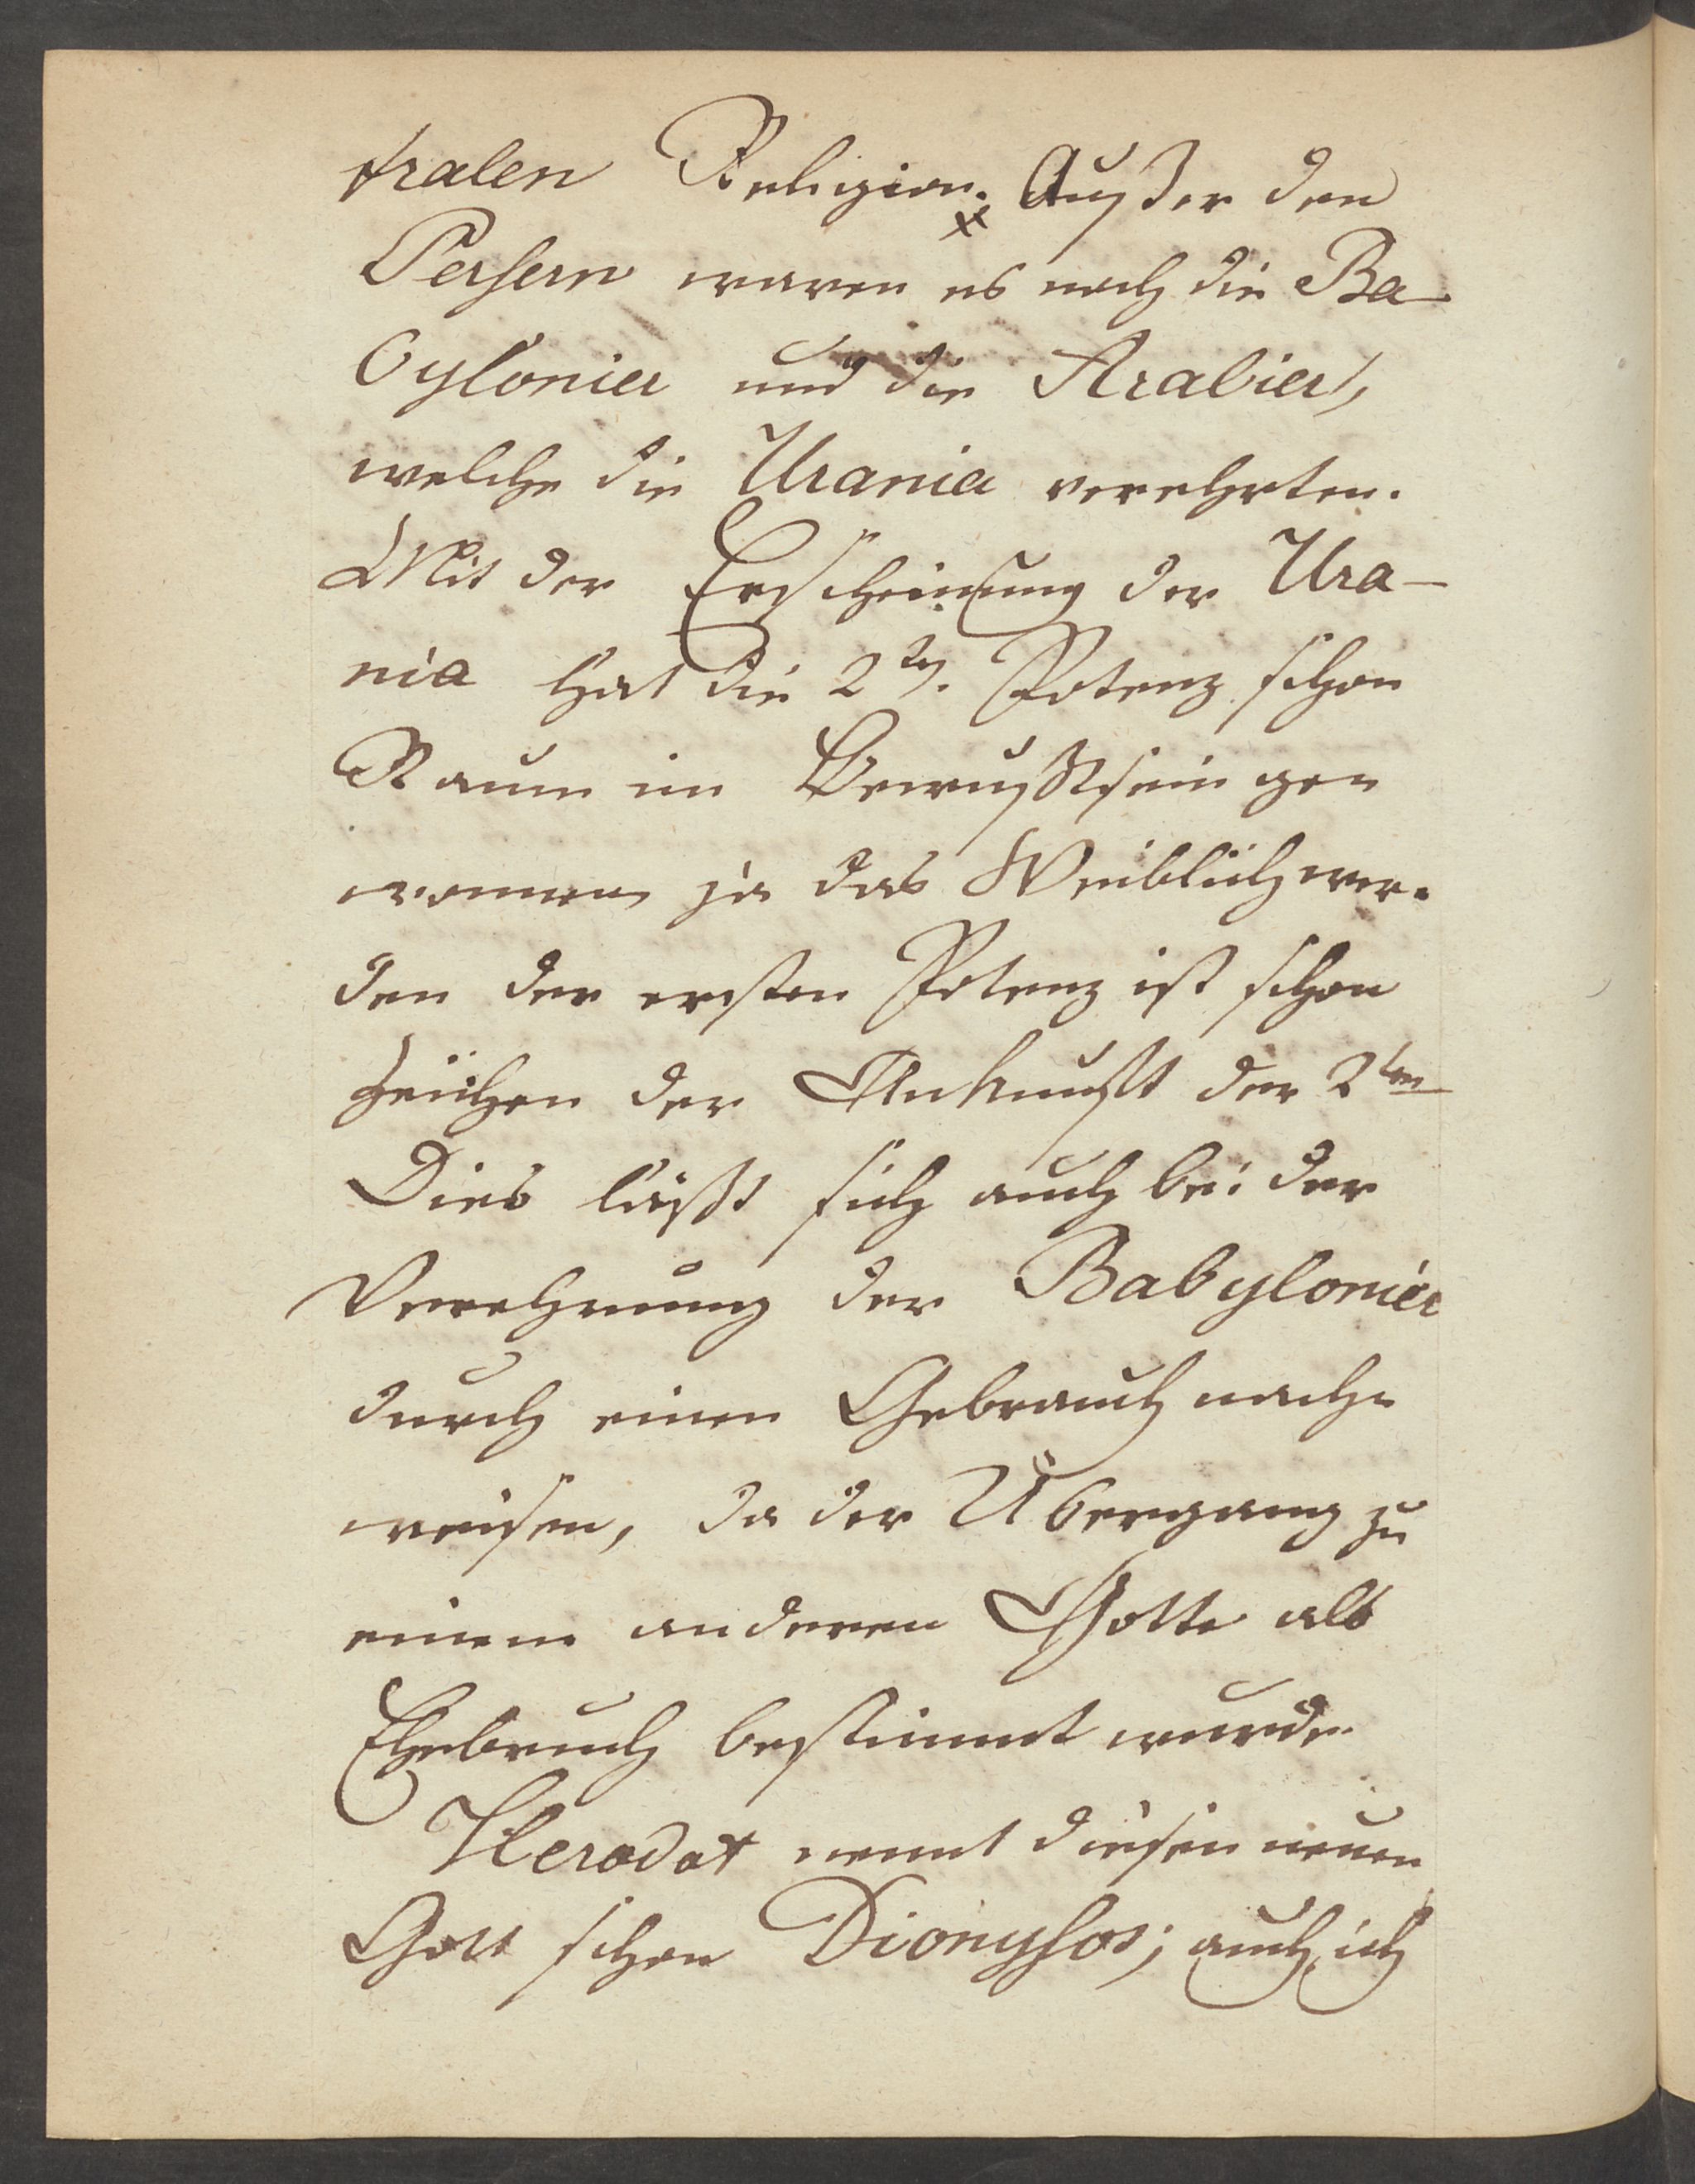 tralen Religion. x Außer den
Persern waren es noch die Ba-
bylonier und die Arabier,
welche die Urania verehrten.
Mit der Erscheinung der Ura-
nia hat die 2te. Potenz schon
Raum im Bewußtsein ge-
wonnen ja das Weiblichwer-
den der ersten Potenz ist schon
Zeichen der Ankunft der 2ten
Dies läßt sich auch bei der
Verehrung der Babylonier
durch einen Gebrauch nach-
weisen, da der Übergang zu
einem anderen Gotte als
Ehebruch bestimmt wurde
Herodot nennt diesen neuen
Gott schon Dionysos; auch ich